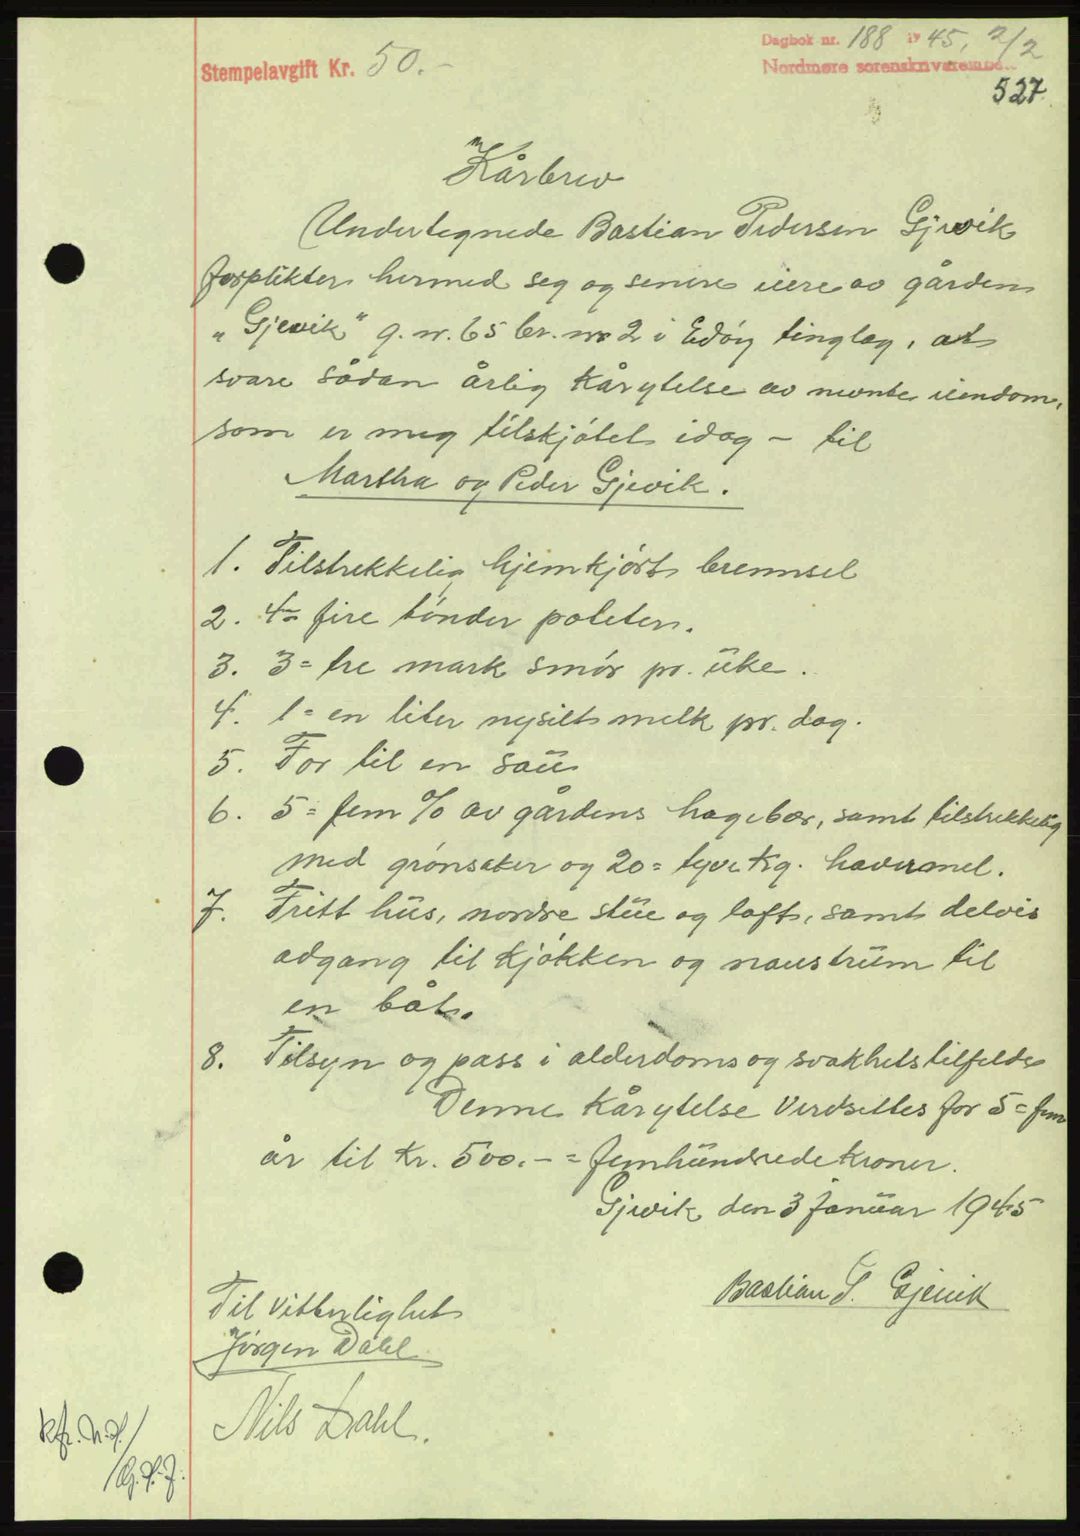 Stempelavgift Kr. 50.-
Dagbok nr. 188 19 45, 2/2
Nordmøre sorenskriverembe..
527
Kårbrev
Undertegnede Bastian Pedersen Gjevik
forplikter hermed seg og senere eiere av gården
"Gjevik" g. nr. 65 br. nr 2 i Edöy tinglag, at
svare sådan årlig kårytelse av nevnte eiendom,
som er meg tilskjötet idag - til
Martha og Peder Gjevik.
1. Tilstrekkelig hjemkjört brennsel
2. 4= fire tönder poteter.
3. 3= tre mark smör pr. uke.
4. 1= en liter nysilt melk pr. dag.
5. For til en sau
6. 5= fem % av gårdens hagebær, samt tilstrekkelig
med grönsaker og 20= tyve kg. havremel.
7. Fritt hus, nordre stue og loft, samt delvis
adgang til kjökken og naustrum til
en båt.
8. Tilsyn og pass i alderdoms og svakhetstilfelde
Denne kårytelse verdsettes for 5= fem
år til kr. 500.- = femhundrede kroner.
Gjevik den 3 januar 1945
Bastian P. Gjevik
Til vitterlighet
Jörgen Dahl
Nils Dahl.
kfr. N.D./
/G.P.J.